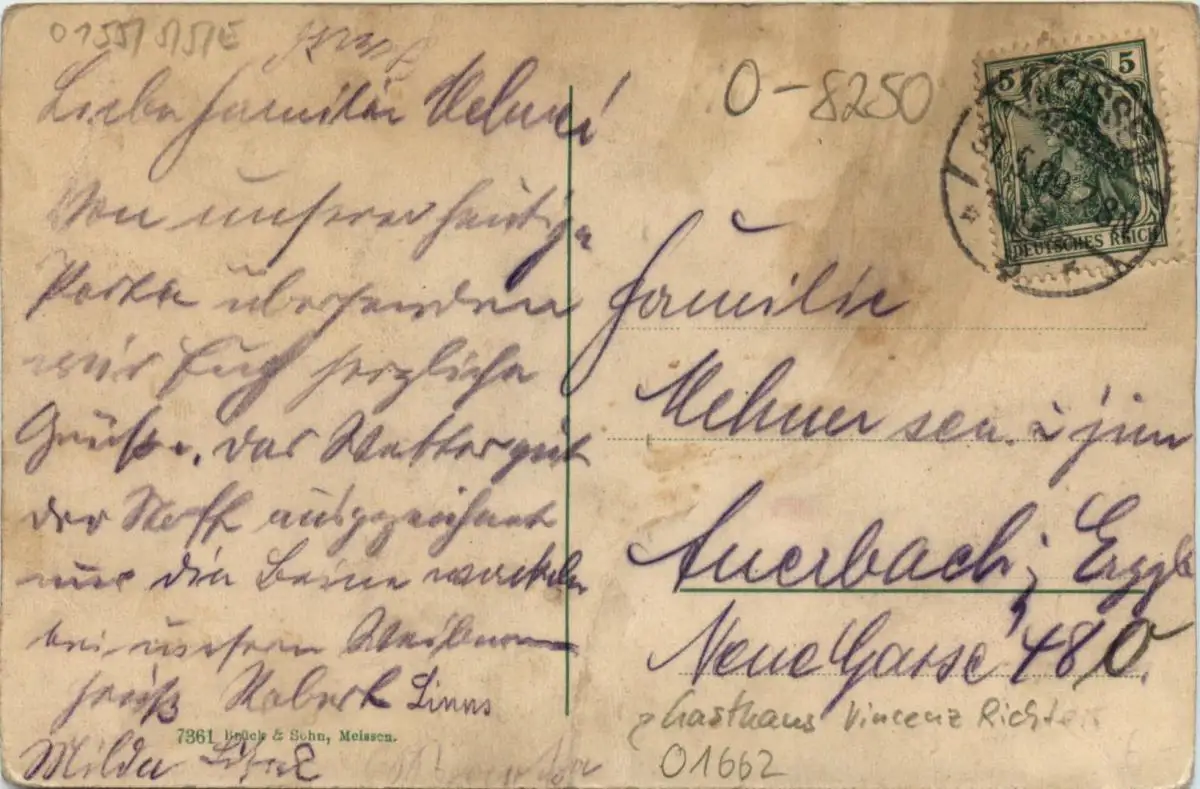 Liebe Familie Mehner!
Von unserer heutigen
Partie übersenden
wir Euch herzliche
Grüße. Das Wetter gut
der Stoff ausgezeichnet
nur die Beine wackeln
bei unsern Weibern
Gruß Robert Linus
Milda
7361 Brück & Sohn, Meissen.
O-8250
5 5
DEUTSCHES REICH
MEISSEN
Familie
Mehner sen. & jun
Auerbach i. Erzgb
Neue Gasse 48 O.
Gasthaus Vincenz Richter
01662